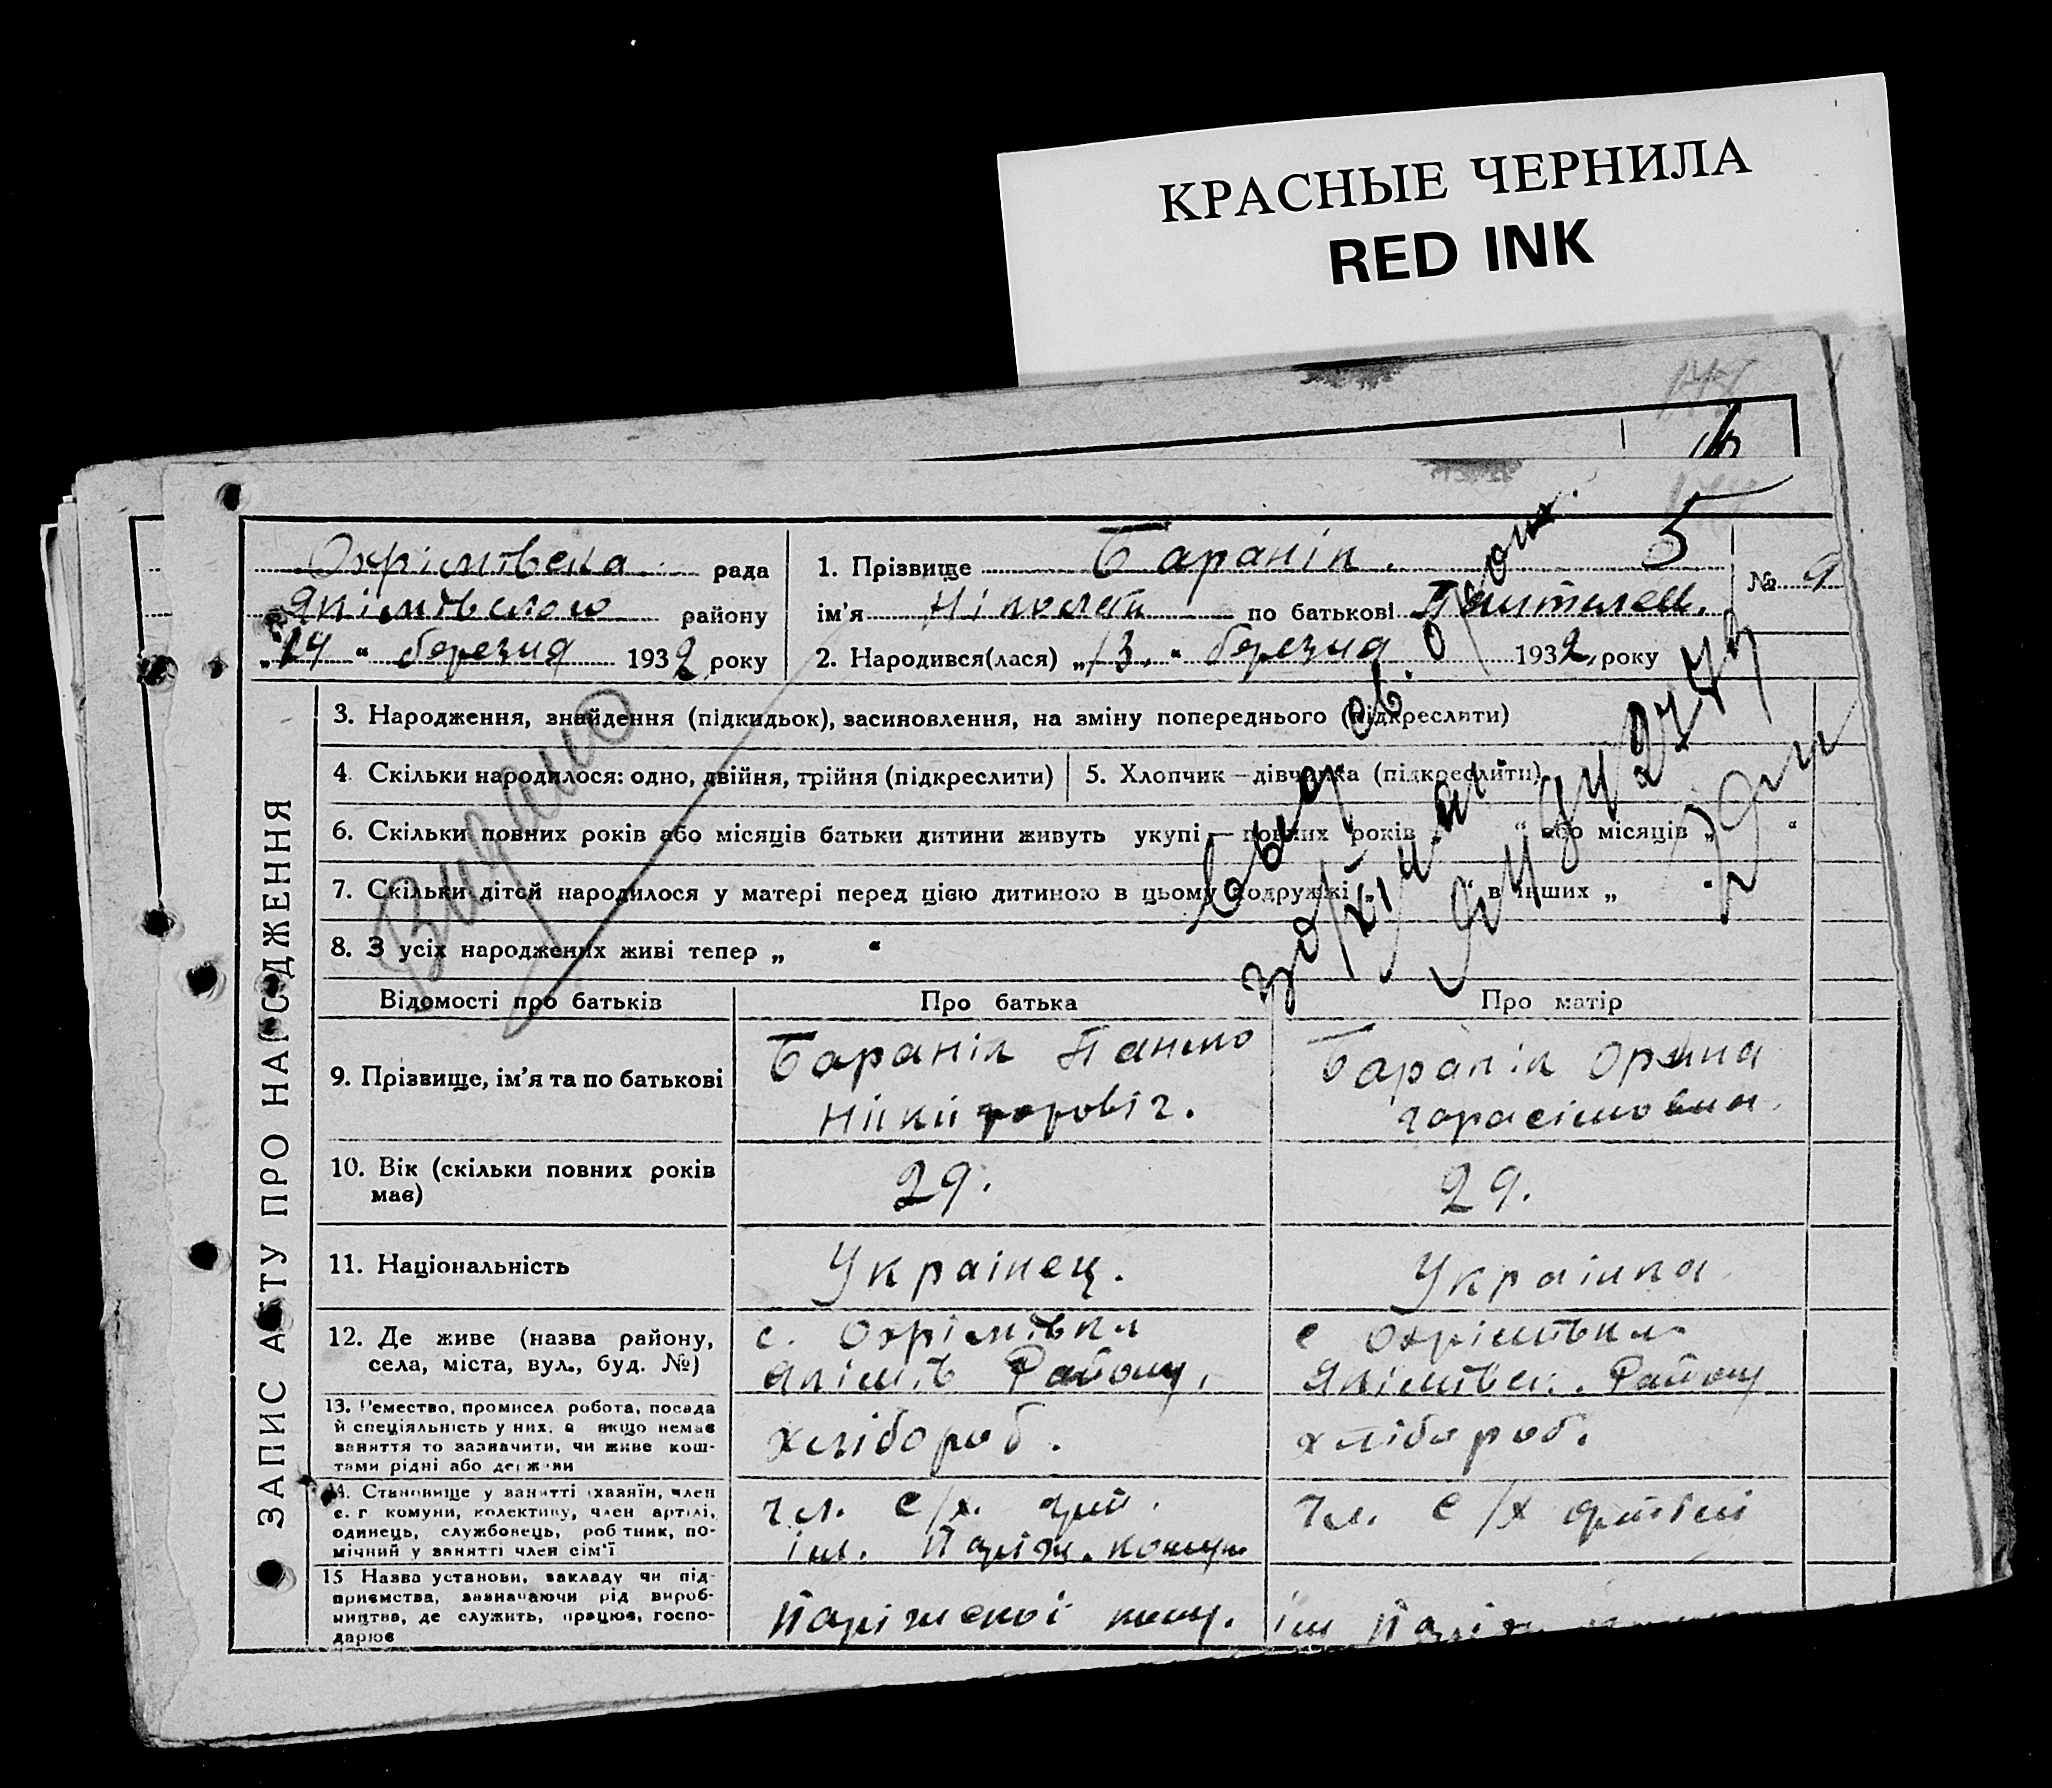 КРАСНЫЕ ЧЕРНИЛА
RED INK
5
Охрімівська рада
Якімівського району
„14“ березня 1932 року
1. Прізвище Баранік.
ім'я Ніколай по батькові
2. Народився(лася) „13.“ березня 1932, року
№ 9
ЗАПИС АКТУ ПРО НАРОДЖЕННЯ
3. Народження, знайдення (підкидьок), засиновлення, на зміну попереднього (підкреслити)
4. Скільки народилося: одно, двійня, трійня (підкреслити)
5. Хлопчик—дівчинка (підкреслити)
6. Скільки повних років або місяців батьки дитини живуть укупі — повних років „ “ або місяців „ “
7. Скільки дітей народилося у матері перед цією дитиною в цьому подружжі „ “ в інших „ “
8. З усіх народжених живі тепер „ “
Видано
Відомості про батьків
Про батька
Про матір
9. Прізвище, ім'я та по батькові
Баранік
Нікіфоровіч.
Баранік Орина
Гарасімовна.
10. Вік (скільки повних років має)
29.
29.
11. Національність
Українец.
Українка
12. Де живе (назва району,
села, міста, вул., буд. №)
с. Охрімівка
Якімів Району,
с Охрімівка
Якімівск. Району
13. Ремество, промисел, робота, посада
й спеціяльність у них, а якщо немає
заняття то зазначити, чи живе кош-
тами рідні або держави
хлібороб.
хлібороб.
14. Становище у занятті (хазяїн, член
с. г комуни, колективу, член артілі,
одинець, службовець, робітник, по-
мічний у занятті член сім'ї
чл. С/х. арт.
ім. Паріж. комун
Чл. С/х артілі
15 Назва установи, закладу чи під-
приємства, зазначаючи рід вироб-
ництва, де служить, працює, госпо-
дарює
Паріжської кому.
ім Паріж